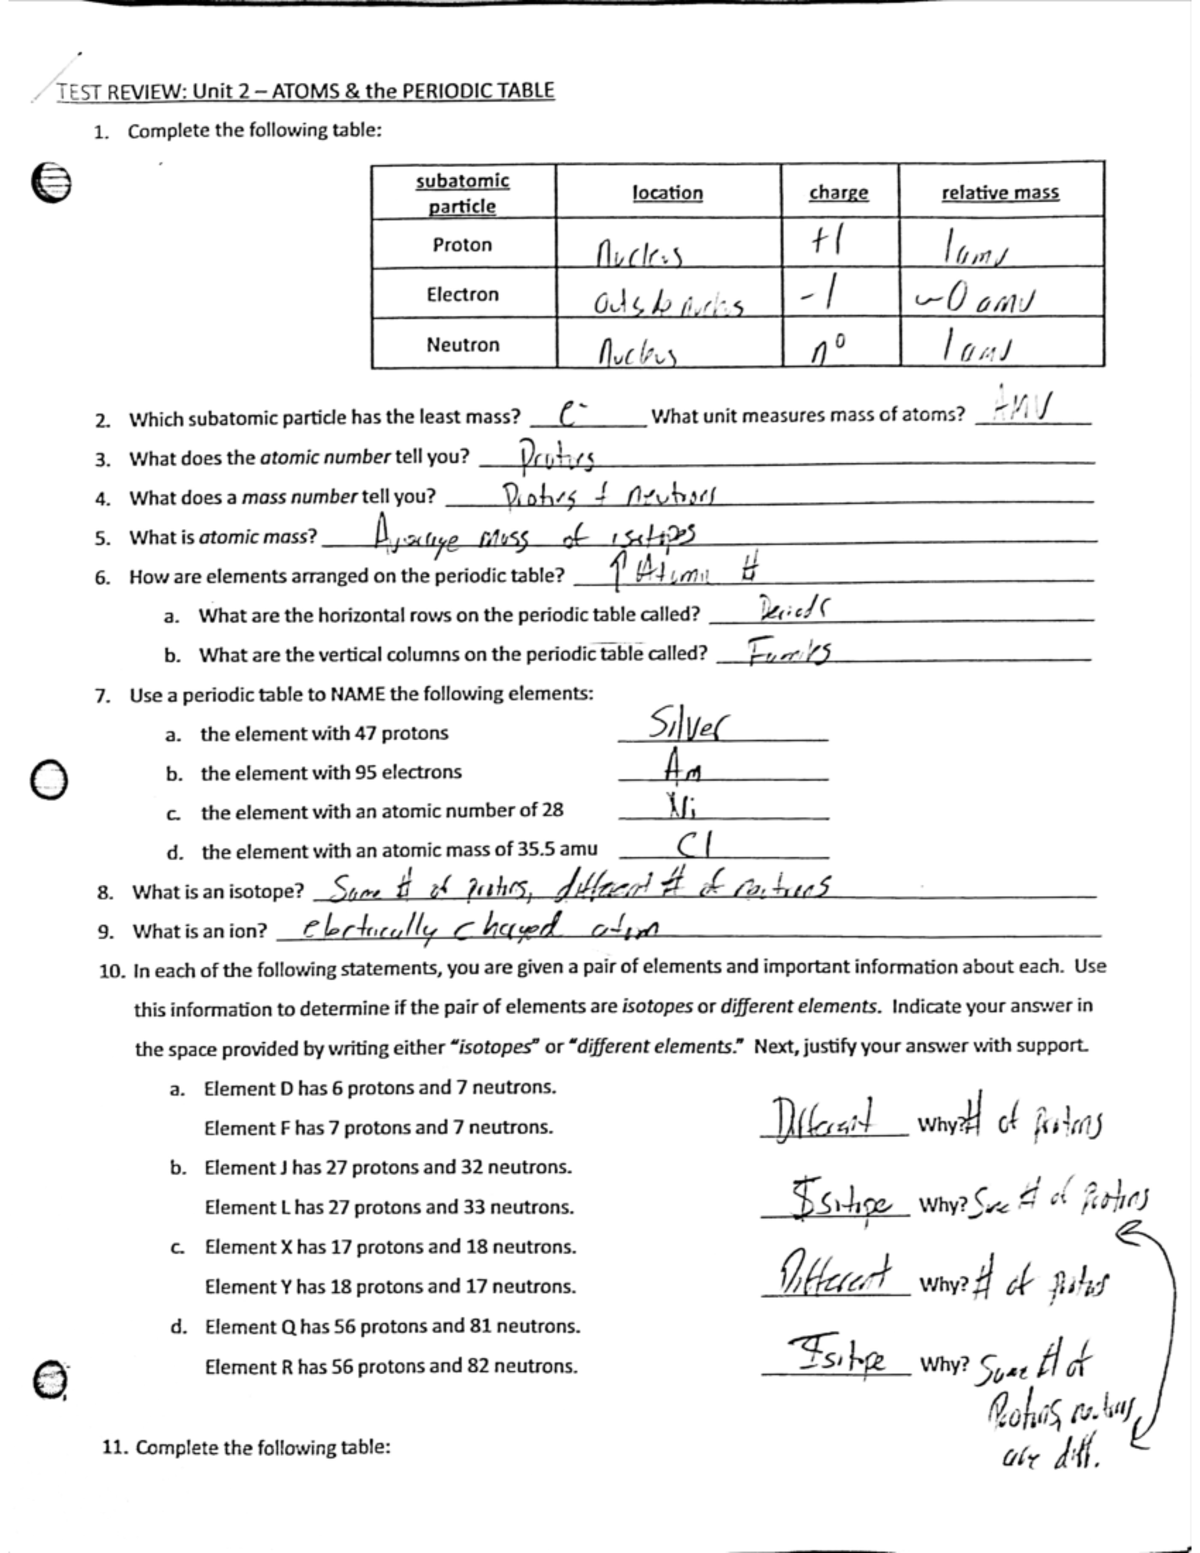 TEST REVIEW: Unit 2 – ATOMS & the PERIODIC TABLE
1. Complete the following table:
subatomic particle location charge relative mass
Proton Nucleus +1 1 amu
Electron outside nucleus -1 ~0 amu
Neutron Nucleus n⁰ 1 amu
2. Which subatomic particle has the least mass? e⁻ What unit measures mass of atoms? AMU
3. What does the atomic number tell you? Protons
4. What does a mass number tell you? Protons + neutrons
5. What is atomic mass? Average mass of isotopes
6. How are elements arranged on the periodic table? ↑ Atomic #
a. What are the horizontal rows on the periodic table called? Periods
b. What are the vertical columns on the periodic table called? Families
7. Use a periodic table to NAME the following elements:
a. the element with 47 protons Silver
b. the element with 95 electrons Am
c. the element with an atomic number of 28 Ni
d. the element with an atomic mass of 35.5 amu Cl
8. What is an isotope? Same # of protons, different # of neutrons
9. What is an ion? electrically charged atom
10. In each of the following statements, you are given a pair of elements and important information about each. Use
this information to determine if the pair of elements are isotopes or different elements. Indicate your answer in
the space provided by writing either “isotopes” or “different elements.” Next, justify your answer with support.
a. Element D has 6 protons and 7 neutrons.
Element F has 7 protons and 7 neutrons. Different Why? # of protons
b. Element J has 27 protons and 32 neutrons.
Element L has 27 protons and 33 neutrons. Isotope Why? Same # of protons
c. Element X has 17 protons and 18 neutrons.
Element Y has 18 protons and 17 neutrons. Different Why? # of protons
d. Element Q has 56 protons and 81 neutrons.
Element R has 56 protons and 82 neutrons. Isotope Why? Same # of
Protons, neutrons
are diff.
11. Complete the following table: